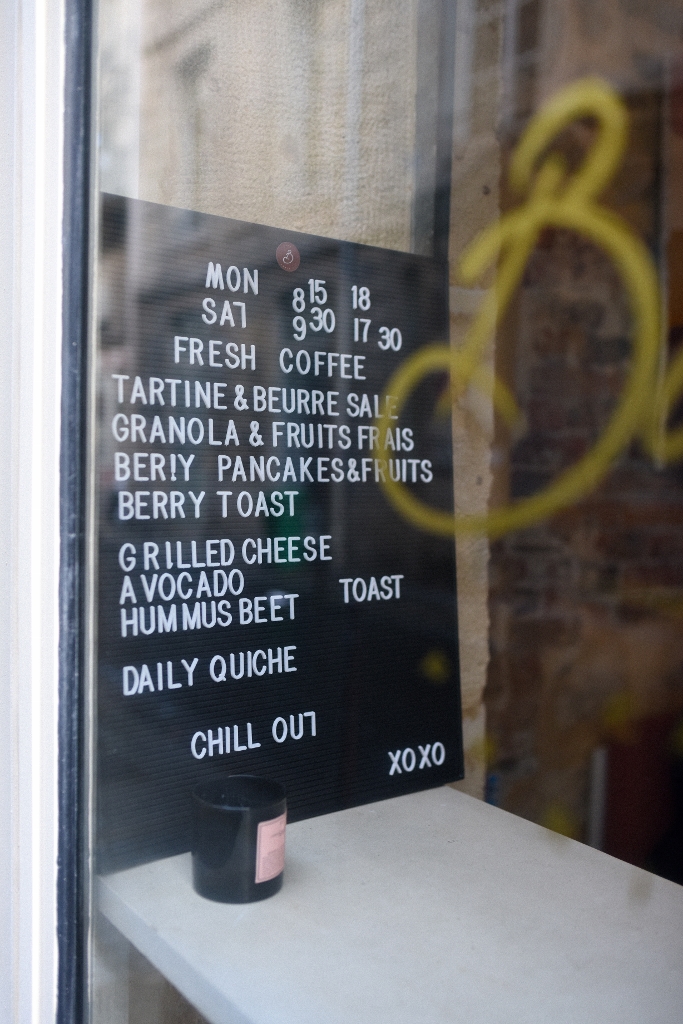 MON 8 15 18
SAT 9 30 17 30
FRESH COFFEE
TARTINE & BEURRE SALE
GRANOLA & FRUITS FRAIS
BER!Y PANCAKES&FRUITS
BERRY TOAST
GRILLED CHEESE
AVOCADO
TOAST
HUMMUS BEET
DAILY QUICHE
CHILL OUT
XOXO